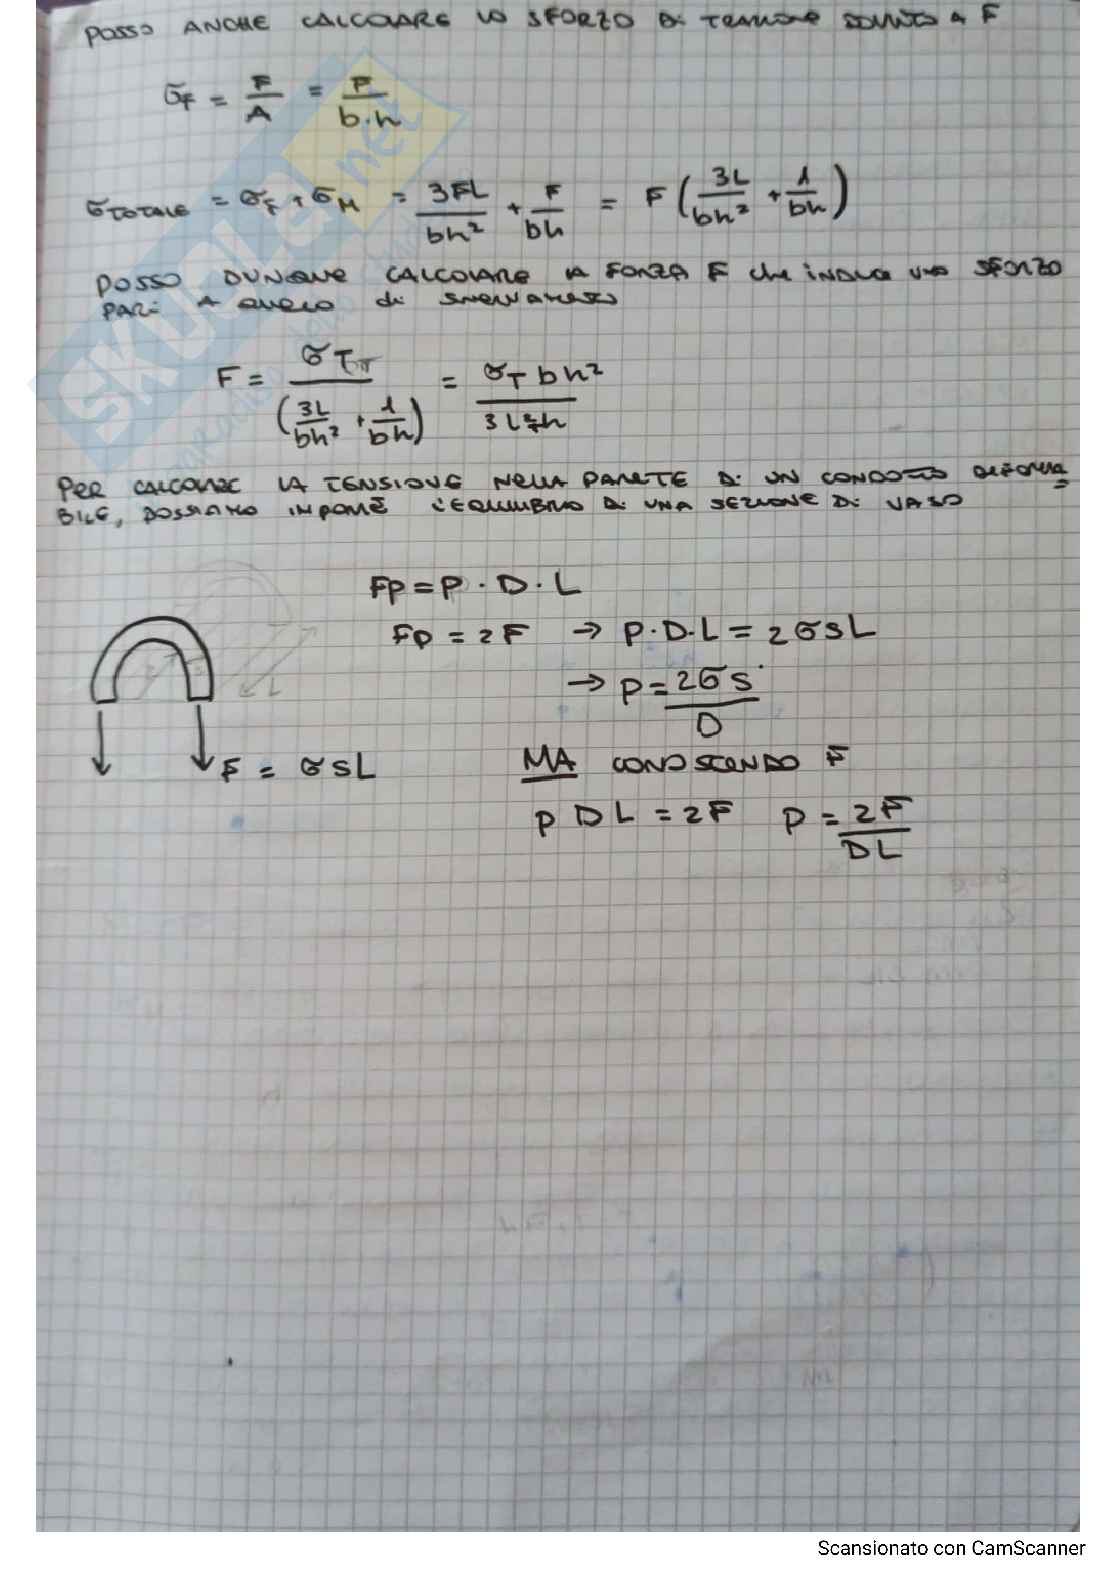 POSSO ANCHE CALCOLARE LO SFORZO DI TRAZIONE DOVUTO A F
σF = F/A = F/b·h
σTOTALE = σF + σM = 3FL/bh² + F/bh = F (3L/bh² + 1/bh)
POSSO DUNQUE CALCOLARE LA FORZA F che induce uno SFORZO
PARI A QUELLO di SNERVAMENTO
F = σT / (3L/bh² + 1/bh) = σT bh² / 3L+h
PER CALCOLARE LA TENSIONE NELLA PARETE DI UN CONDOTTO DEFORMA
BILE, POSSIAMO IMPORRE L'EQUILIBRIO DI UNA SEZIONE DI VASO
Fp = P · D · L
Fp = 2F → P·D·L = 2σsL
→ P = 2σs/D
L
F = σsL
MA CONOSCENDO F
P D L = 2F P = 2F/DL
SKUOLA.net
Scansionato con CamScanner